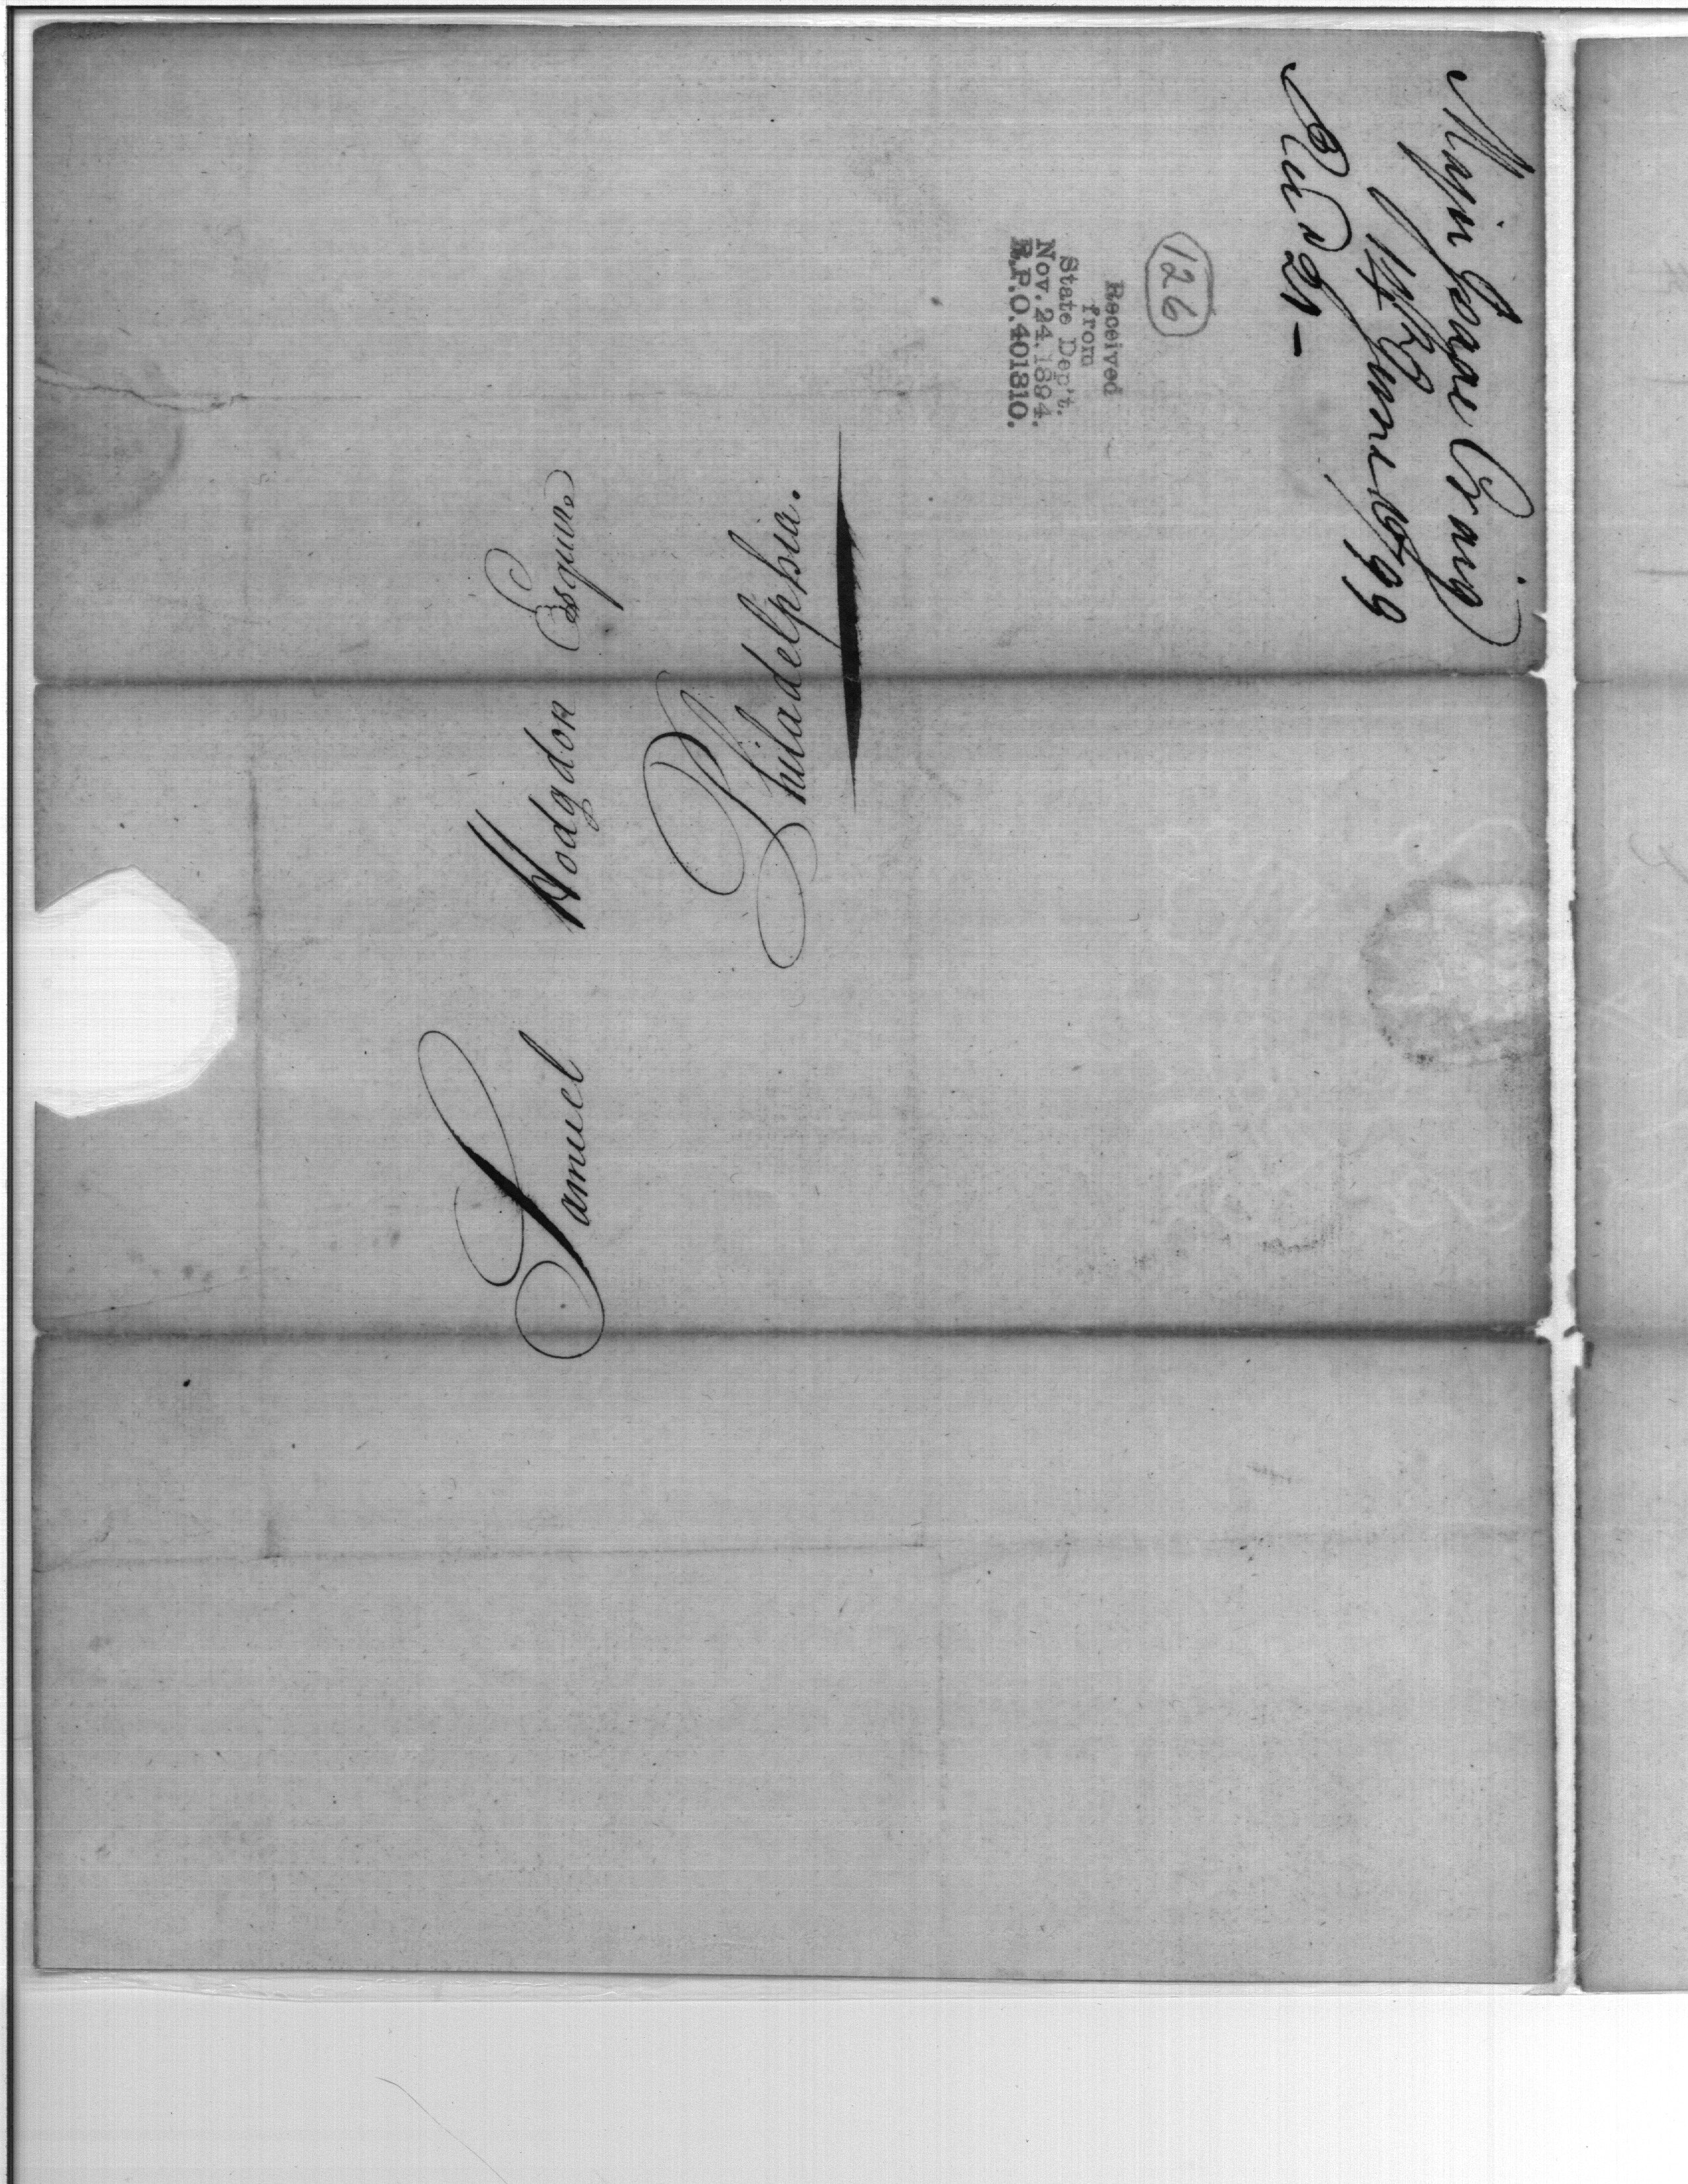 Major Isaac Craig
14th June 1799
Recd 21 —
126
Received
from
State Dep't.
Nov. 24. 1894.
R.P.O. 401310.
Samuel Hodgdon Esquire
Philadelphia.